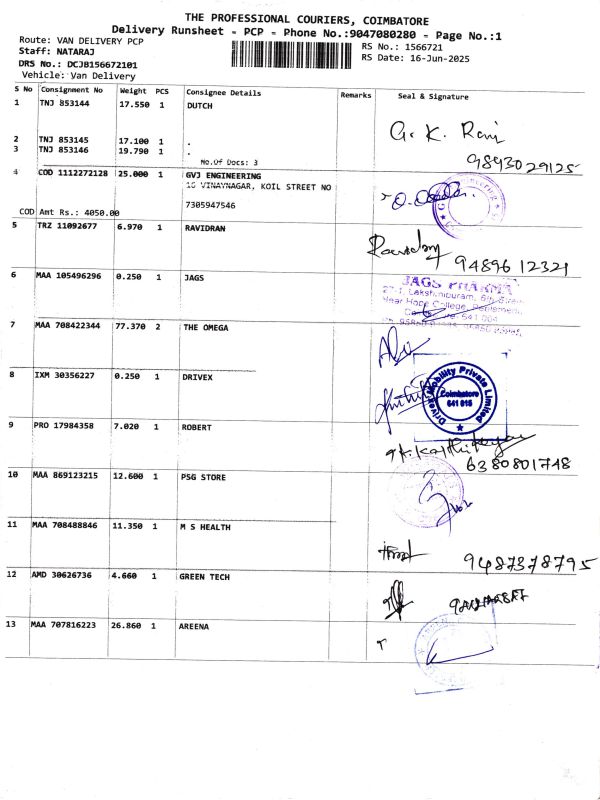 THE PROFESSIONAL COURIERS, COIMBATORE
Delivery Runsheet - PCP - Phone No.:9047080280 - Page No.:1
Route: VAN DELIVERY PCP
RS No.: 1566721
Staff: NATARAJ
RS Date: 16-Jun-2025
DRS No.: DCJB156672101
Vehicle: Van Delivery
S No Consignment No Weight PCS Consignee Details Remarks Seal & Signature
1 TNJ 853144 17.550 1 DUTCH
G. K. Ravi
2 TNJ 853145 17.100 1 .
3 TNJ 853146 19.790 1 .
No.Of Docs: 3
9893029125
4 COD 1112272128 25.000 1 GVJ ENGINEERING
16 VINAYNAGAR, KOIL STREET NO
7305947546
COD Amt Rs.: 4050.00
5 TRZ 11092677 6.970 1 RAVIDRAN
9489612321
6 MAA 105496296 0.250 1 JAGS
JAGS PHARMA
Lakshmipuram, 6th Street
Near Hope College, Peelamedu
7 MAA 708422344 77.370 2 THE OMEGA
8 IXM 30356227 0.250 1 DRIVEX
Drivex Mobility Private Limited
Coimbatore
641 015
9 PRO 17984358 7.020 1 ROBERT
6380801748
10 MAA 869123215 12.600 1 PSG STORE
11 MAA 708488846 11.350 1 M S HEALTH
9487378795
12 AMD 30626736 4.660 1 GREEN TECH
13 MAA 707816223 26.860 1 AREENA